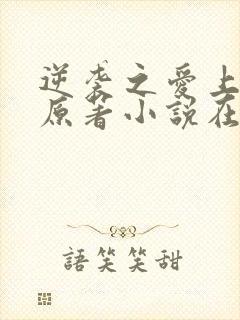 逆袭之愛上
原著小説在
語笑笑甜